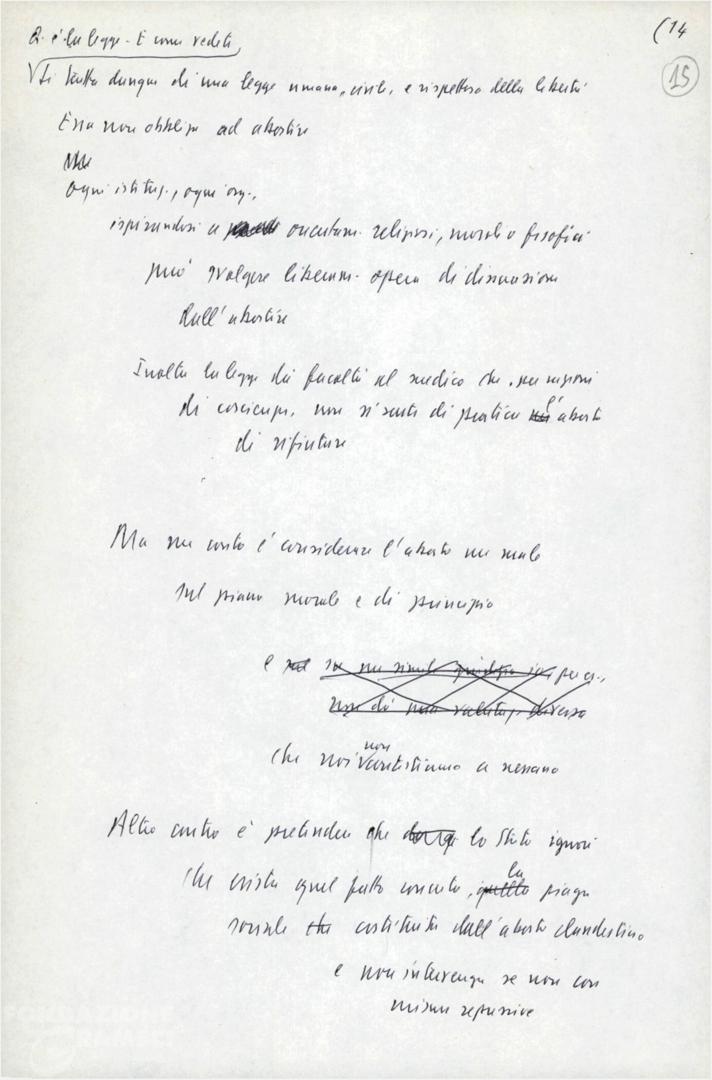 (14
15
Q. è la legge - E come vedete,
Si tratta dunque di una legge umana, civile, e rispettosa della libertà
Essa non obbliga ad abortire
ogni istituz., ogni org.,
ispirandosi a orientam. religiosi, morali o filosofici
può svolgere liberam. opera di dissuasione
dall'abortire
Inoltre la legge dà facoltà al medico che, per ragioni
di coscienza, non si senta di praticare l'aborto
di rifiutare
Ma un conto è considerare l'aborto un male
sul piano morale e di principio
e
che noi non contestiamo a nessuno
Altro conto è pretendere che lo Stato ignori
che esista quel fatto concreto, la piaga
sociale costituita dall'aborto clandestino
e non intervenga se non con
misure repressive